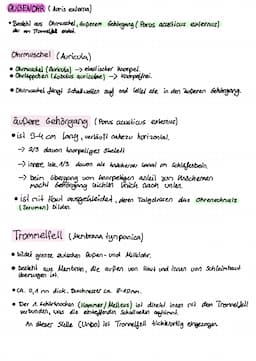 AUßENOHR (Auris externa)
• Besteht aus Ohrmuschel, äußerem Gehörgang (Porus acusticus externus)
der am Trommelfell endet.
Ohrmuschel (Auricula)
• Ohrmuschel (Auricula) → elastischer Knorpel
• Ohrläppchen (Lobulus auriculae) → knorpelfrei
• Ohrmuschel fängt Schallwellen auf und leitet sie in den äußeren Gehörgang.
äußere Gehörgang (Porus acusticus externus)
• ist 3-4 cm lang, verläuft nahezu horizontal.
→ 2/3 davon knorpeliges Skelett
→ innere 1/3 davon als knöcherner Kanal im Schläfenbein.
→ beim Übergang von knorpeligen Anteil zum knöchernen
macht Gehörgang leichten Knick nach unten.
• ist mit Haut ausgekleidet, deren Talgdrüsen das Ohrenschmalz
(Cerumen) bilden.
Trommelfell (Membrana tympanica)
• Bildet grenze zwischen Außen- und Mittelohr.
• Besteht aus Membran, die außen von Haut und innen von Schleimhaut
überzogen ist.
• ca. 0,1 mm dick, Durchmesser ca. 8-10mm.
• Der 1. Gehörknöchen (Hammer/Malleus) ist direkt innen mit dem Trommelfell
verbunden, was die eintreffenden Schallwellen aufnimmt.
An dieser Stelle (Umbo) ist Trommelfell trichterförmig eingezogen.